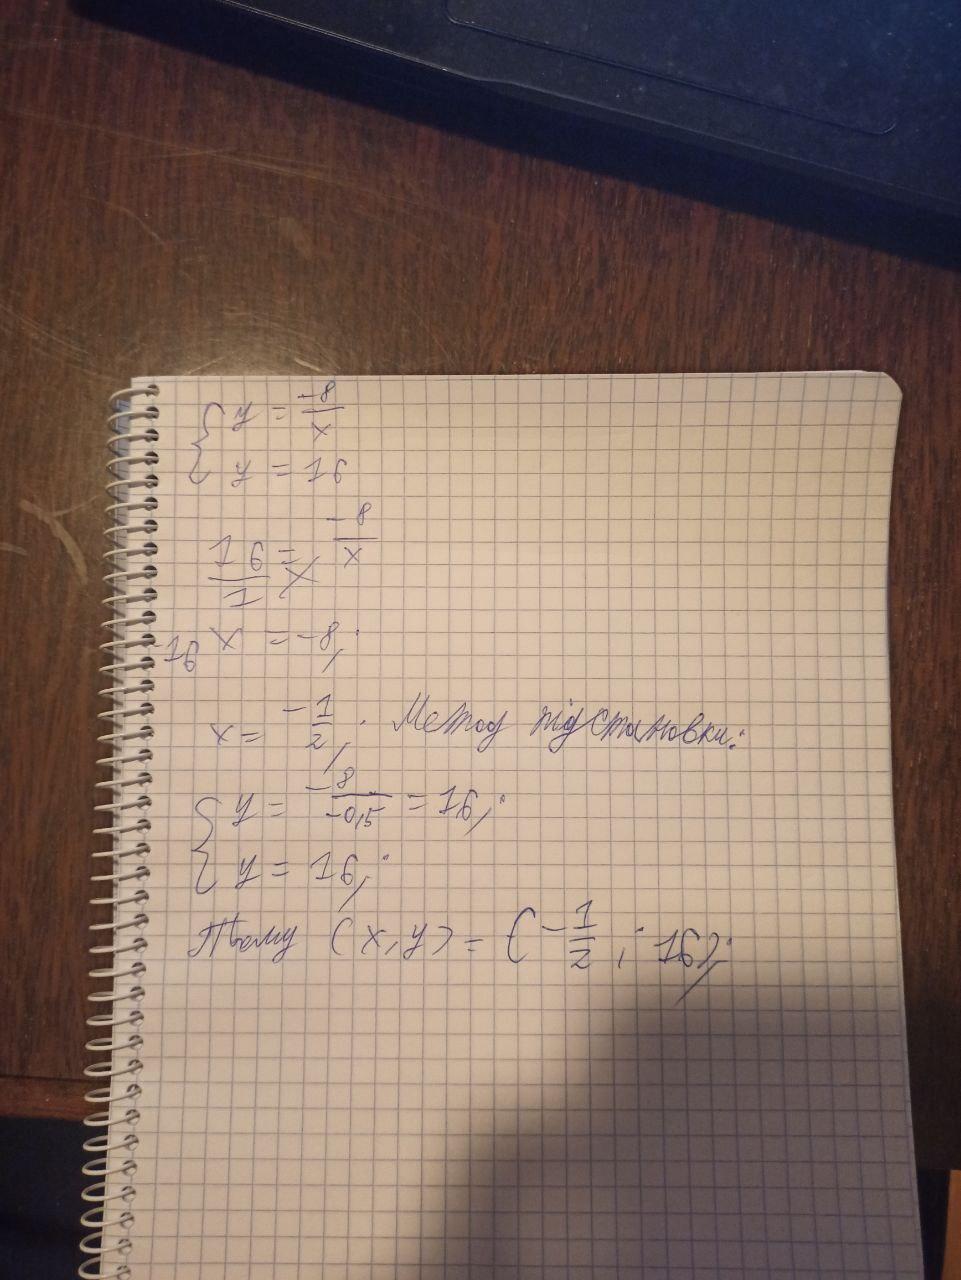 { y = -8/x
y = 16
16/1 = -8/x
-16 x = -8;
x = -1/2; Метод підстановки:
{ y = -8/-0,5 = 16;
y = 16;
Тому (x, y) = (-1/2; 16);